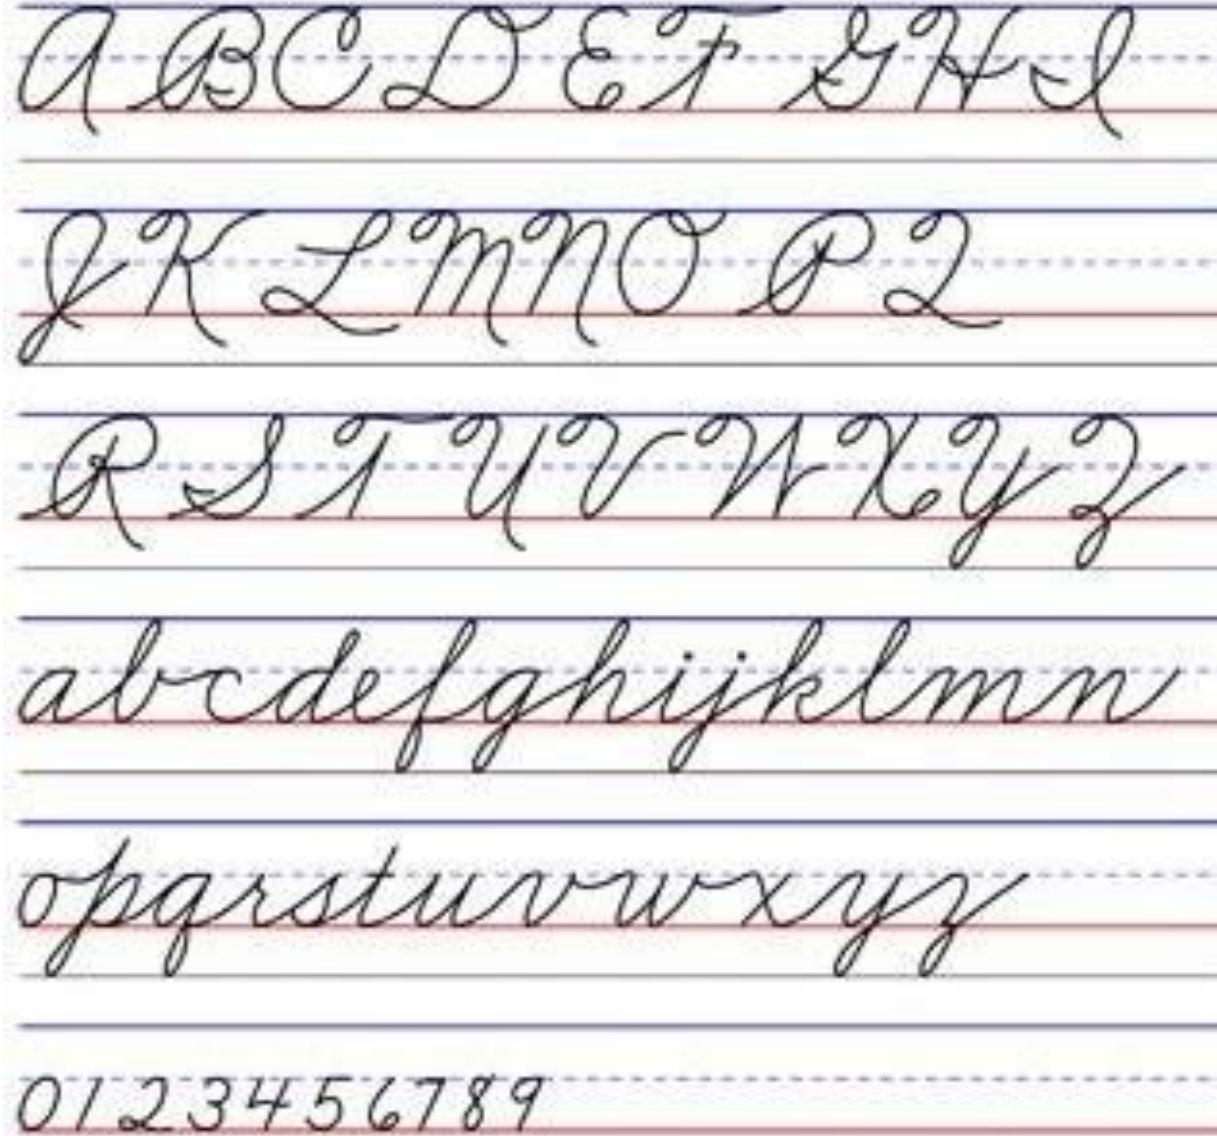 A B C D E F G H I
J K L M N O P Q
R S T U V W X Y Z
abcdefghijklmn
opqrstuvwxyz
0123456789